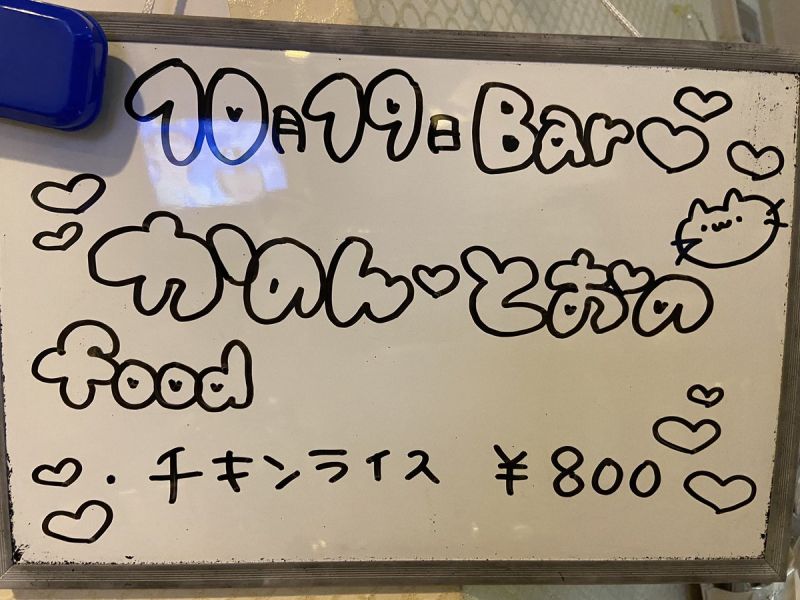 10月19日 Bar
かのん♡とおの
food
・チキンライス ¥800